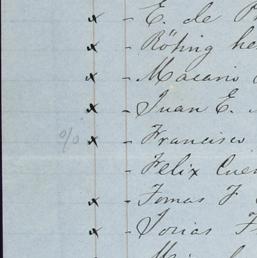 x - E. de
x - Röhing he
x - Macario
x - Juan E.
% x - Francisco
- Felix Cue
x - Tomas F
x - Tobias F